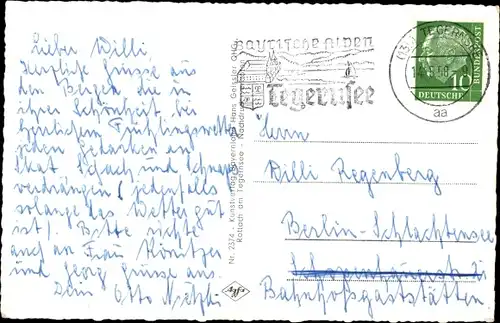 Lieber Willi,
herzliche Grüsse aus
den Bergen die in
ihrer Schönheit bei
herrlichem Frühlingswetter
jeden Gedanken an
Skat Schach und Schnaps
verdrängen (jedenfalls
solange das Wetter gut
ist). Bitte richte
auch an Frau
und Georg Grüsse aus.
Dein Otto
Nr. 2374 - Kunstverlag Bavernland Hans Geissler OHG
Rottach am Tegernsee - Nachdruck
Bayrische Alpen
Tegernsee
(13b) TEGERNSEE
aa
10
DEUTSCHE
BUNDESPOST
Herrn
Willi Regenberg
Berlin-Schlachtensee
Bahnhofsgaststätten